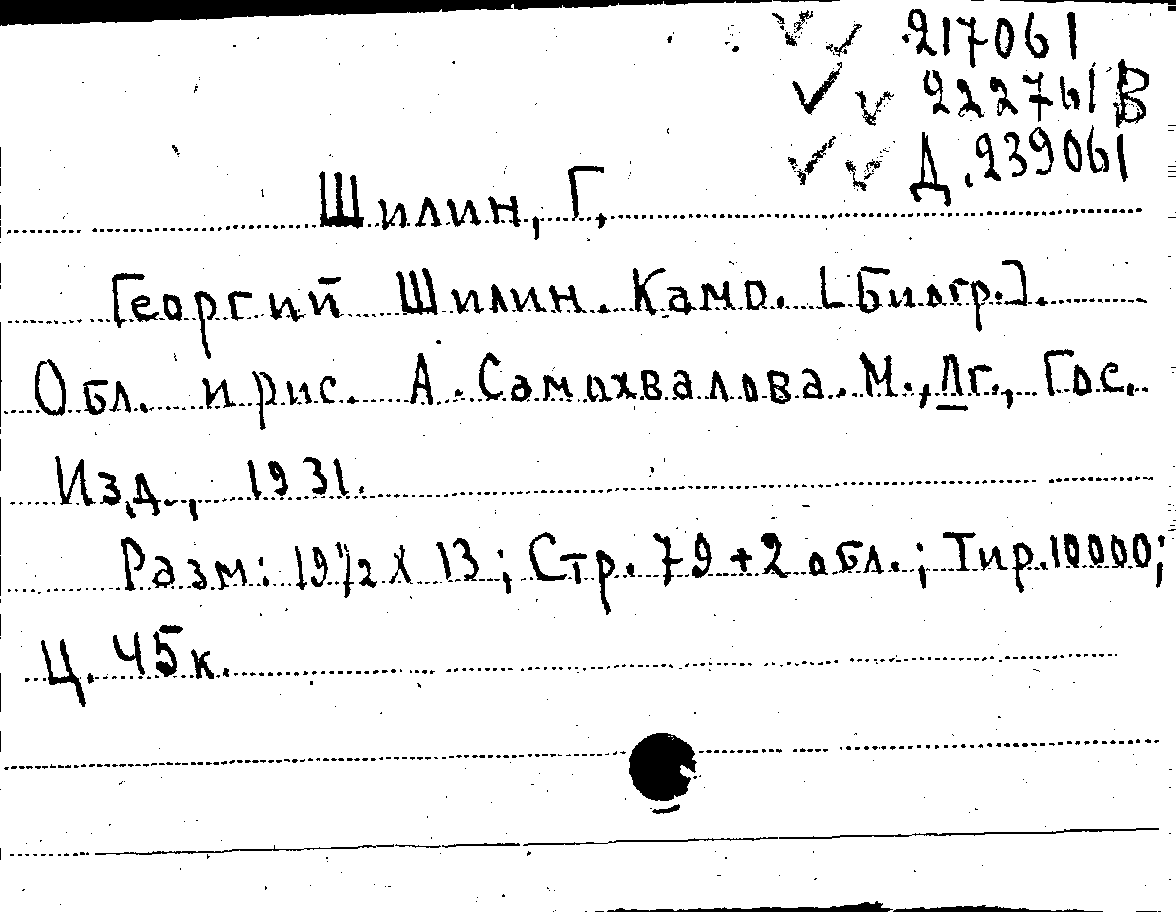 217061
222761В
Д.239061
Шилин, Г,
Георгий Шилин. Камо. [Биогр.].
Обл. и рис. А. Самохвалова. М., Лг., Гос.
Изд., 1931.
Разм: 19½ X 13; Стр. 79 + 2 обл.; Тир. 10000;
Ц. 45к.